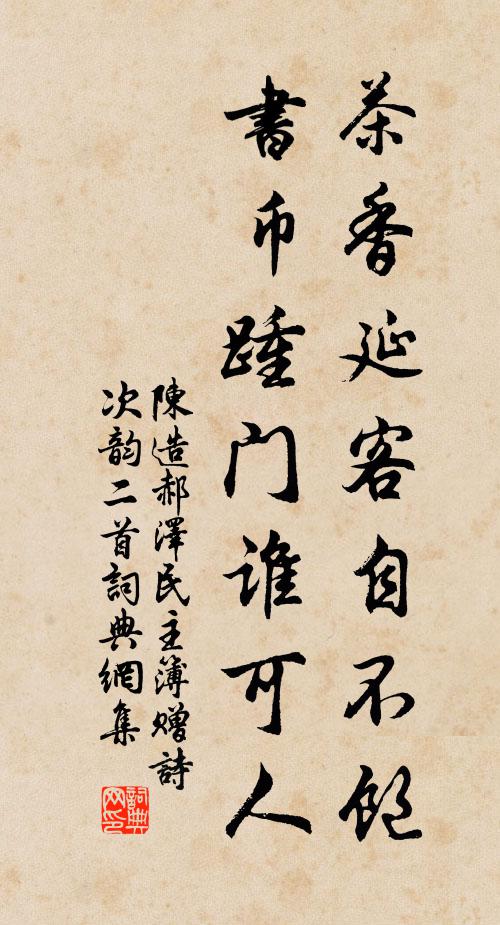 茶香延客自不飽
書币踵门谁可人
陳造郝澤民主簿赠詩
次韵二首詞典網集
詞典网印